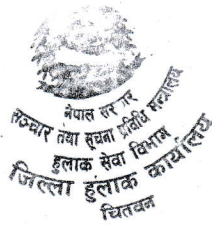 नेपाल सरकार
सञ्चार तथा सूचना प्रविधि मन्त्रालय
हुलाक सेवा विभाग
जिल्ला हुलाक कार्यालय
चितवन